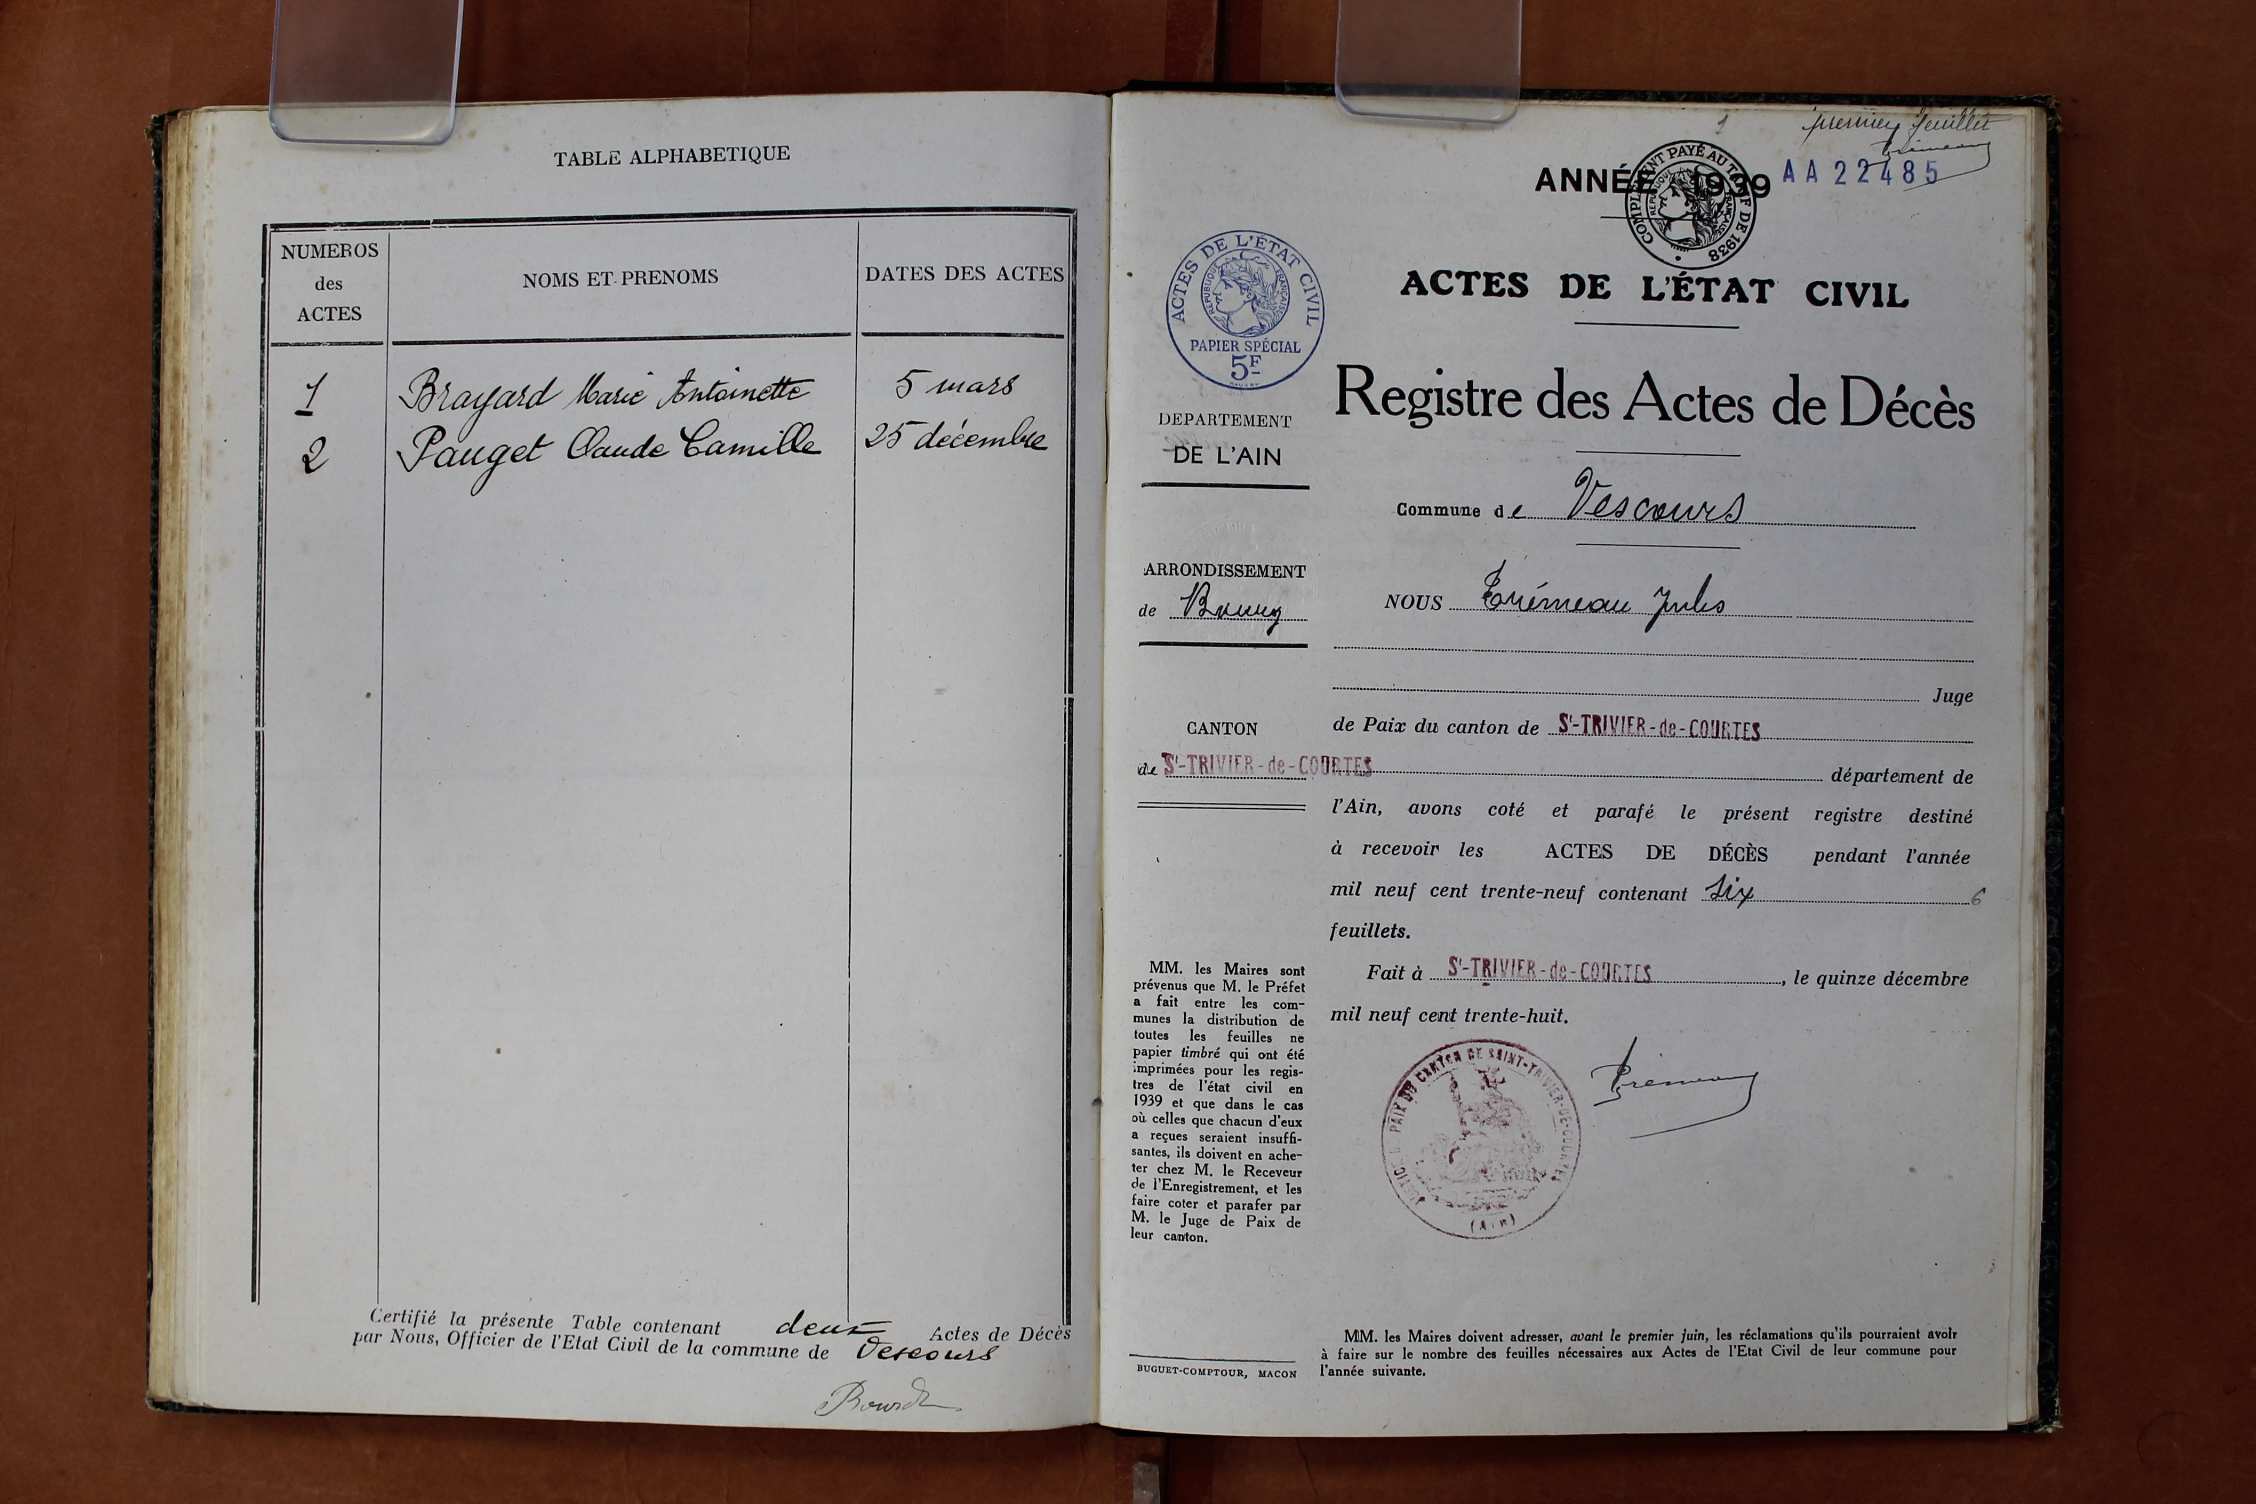 TABLE ALPHABETIQUE
NUMEROS
des
ACTES
NOMS ET PRENOMS
DATES DES ACTES
1 Brayard Marie Antoinette 5 mars
2 Pauget Claude Camille 25 décembre
Certifié la présente Table contenant deux Actes de Décès
par Nous, Officier de l'Etat Civil de la commune de Vescours
1
premier feuillet
Trémeau
ANNÉE 1939
AA 22485
COMPLÉMENT PAYÉ AU TARIF DE 1938
RÉPUBLIQUE FRANÇAISE
ACTES DE L'ÉTAT CIVIL
RÉPUBLIQUE FRANÇAISE
PAPIER SPÉCIAL
5F
ACTES DE L'ÉTAT CIVIL
Registre des Actes de Décès
DEPARTEMENT
DE L'AIN
Commune de Vescours
ARRONDISSEMENT
de Bourg
NOUS Trémeau Jules
Juge
CANTON
de St-TRIVIER-de-COURTES
de Paix du canton de St-TRIVIER-de-COURTES
département de
l'Ain, avons coté et parafé le présent registre destiné
à recevoir les ACTES DE DÉCÈS pendant l'année
mil neuf cent trente-neuf contenant six 6
feuillets.
Fait à St-TRIVIER-de-COURTES, le quinze décembre
mil neuf cent trente-huit.
PAIX DU CANTON DE SAINT-TRIVIER-DE-COURTES
(Ain)
Trémeau
MM. les Maires sont
prévenus que M. le Préfet
a fait entre les com-
munes la distribution de
toutes les feuilles ne
papier timbré qui ont été
imprimées pour les regis-
tres de l'état civil en
1939 et que dans le cas
où celles que chacun d'eux
a reçues seraient insuffi-
santes, ils doivent en ache-
ter chez M. le Receveur
de l'Enregistrement, et les
faire coter et parafer par
M. le Juge de Paix de
leur canton.
BUGUET-COMPTOUR, MACON
MM. les Maires doivent adresser, avant le premier juin, les réclamations qu'ils pourraient avoir
à faire sur le nombre des feuilles nécessaires aux Actes de l'Etat Civil de leur commune pour
l'année suivante.